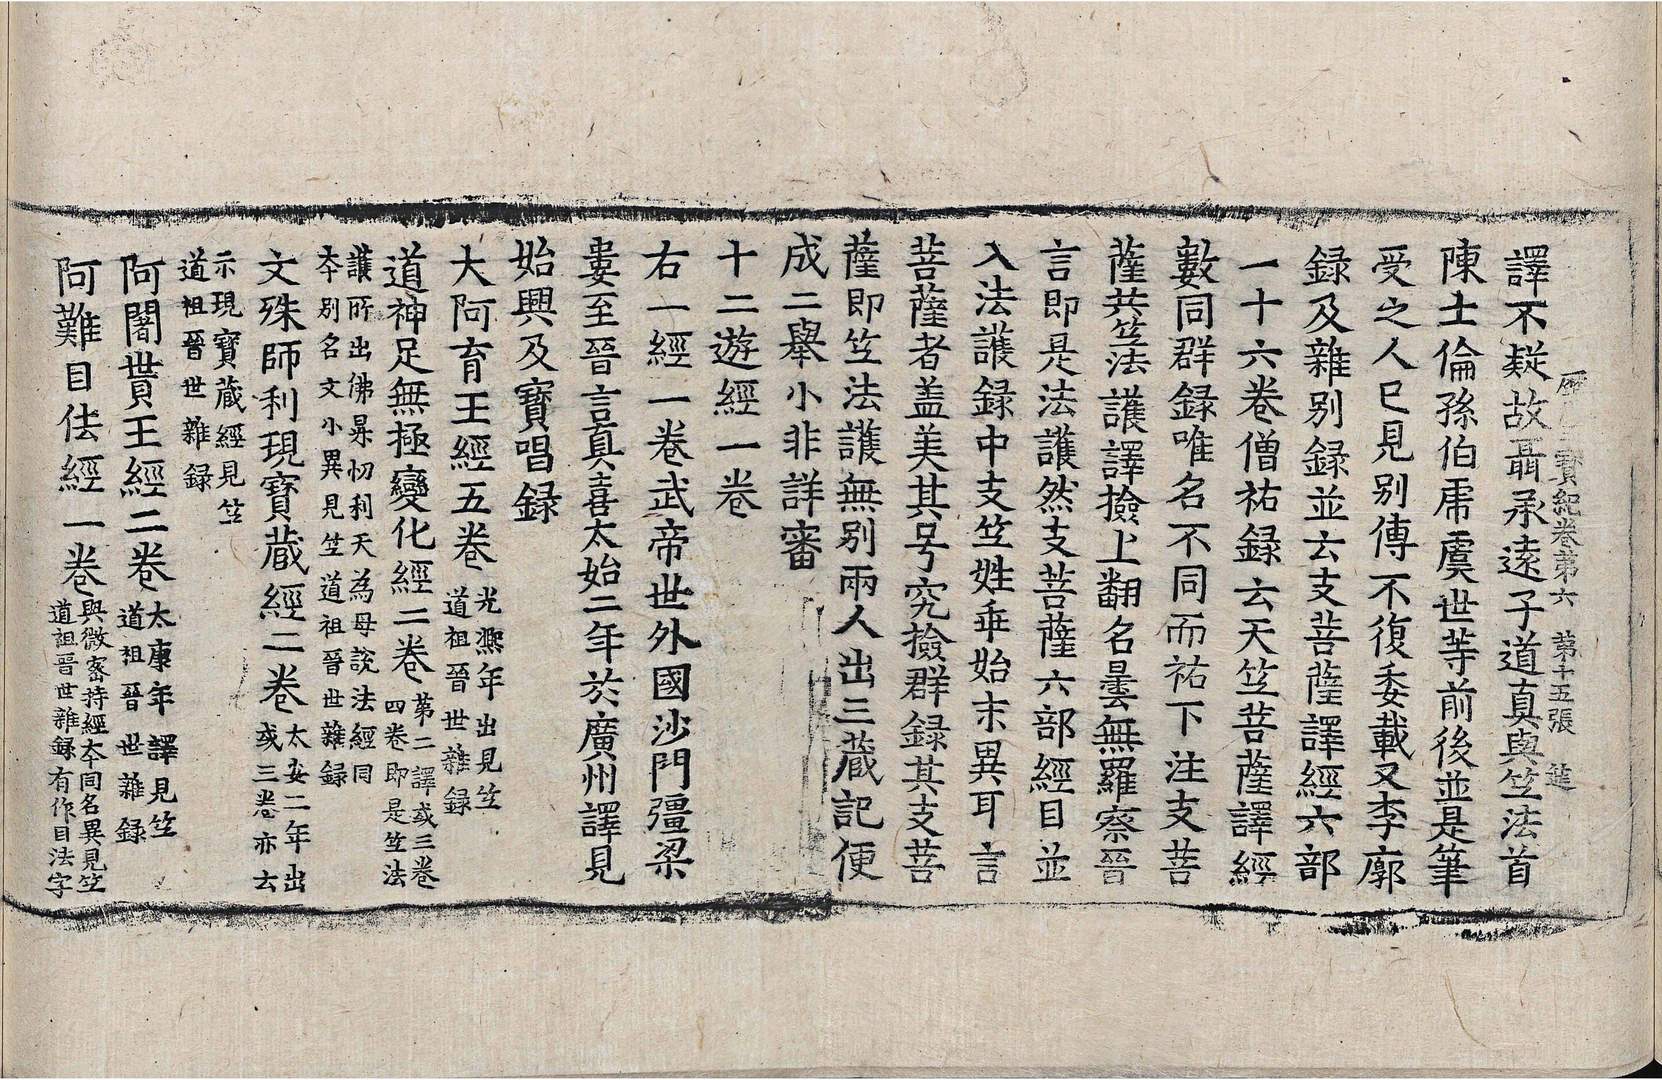 寶紀卷第六 第十五張 筵
譯不疑故聶承遠子道真與竺法首
陳士倫孫伯虎虞世等前後並是筆
受之人已見別傳不復委載又李廓
録及雜別録並云支菩薩譯經六部
一十六卷僧祐録云天竺菩薩譯經
數同群録唯名不同而祐下注支菩
薩共竺法護譯撿上翻名曇無羅察晉
言即是法護然支菩薩六部經目並
入法護録中支竺姓乖始末異耳言
菩薩者盖美其号究撿群録其支菩
薩即竺法護無別兩人出三藏記便
成二舉小非詳審
十二遊經一卷
右一經一卷武帝世外國沙門彊梁
婁至晉言真喜太始二年於廣州譯見
始興及寶唱録
大阿育王經五卷 光熈年出見竺
道祖晉世雜録
道神足無極變化經二卷 第二譯或三卷
四卷即是竺法
護所出佛昇忉利天為母說法經同
夲別名文小異見竺道祖晉世雜録
文殊師利現寶藏經二卷 太安二年出
或三卷亦云
示現寶藏經見竺
道祖晉世雜録
阿闍世王經二卷 太康年譯見竺
道祖晉世雜録
阿難目佉經一卷 與微密持經夲同名異見竺
道祖晉世雜録有作目法字